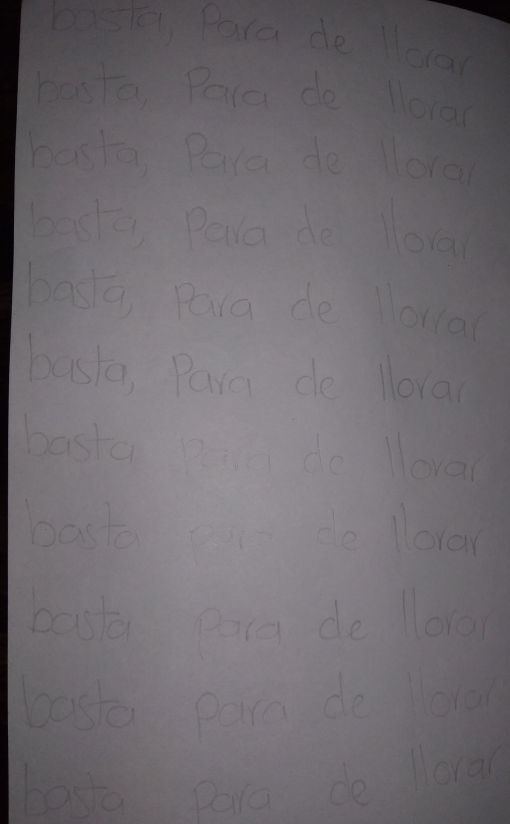 basta, Para de llorar
basta, Para de llorar
basta, Para de llorar
basta, Para de llorar
basta, Para de llorrar
basta, Para de llorar
basta para de llorar
basta para de llorar
basta para de llorar
basta para de llorar
basta para de llorar